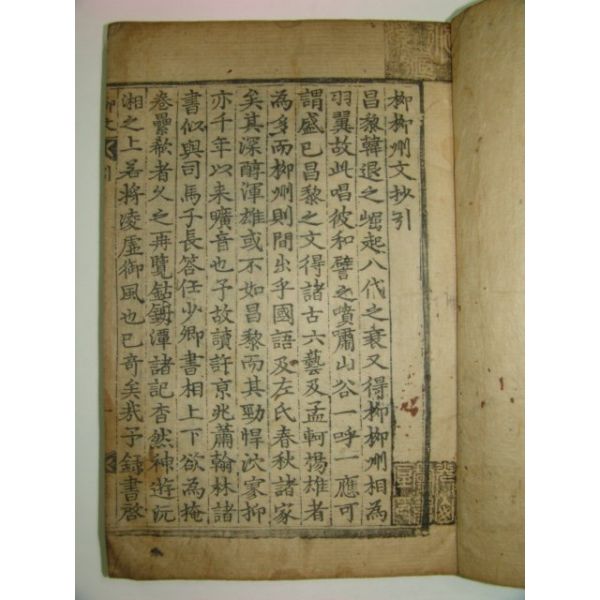 柳柳州文抄引
昌黎韓退之崛起八代之衰又得柳柳州相為
羽翼故此唱彼和譬之噴嘯山谷一呼一應可
謂盛已昌黎之文得諸古六藝及孟軻揚雄者
為多而柳州則間出乎國語及左氏春秋諸家
矣其深醇渾雄或不如昌黎而其勁悍沈寥抑
亦千年以来曠音也予故讀許京兆蕭翰林諸
書似與司馬子長答任少卿書相上下欲為掩
卷纍欷者久之再覽鈷鉧潭諸記杳然神遊沅
湘之上若將凌虛御風也已奇矣哉予錄書啓
柳文
引